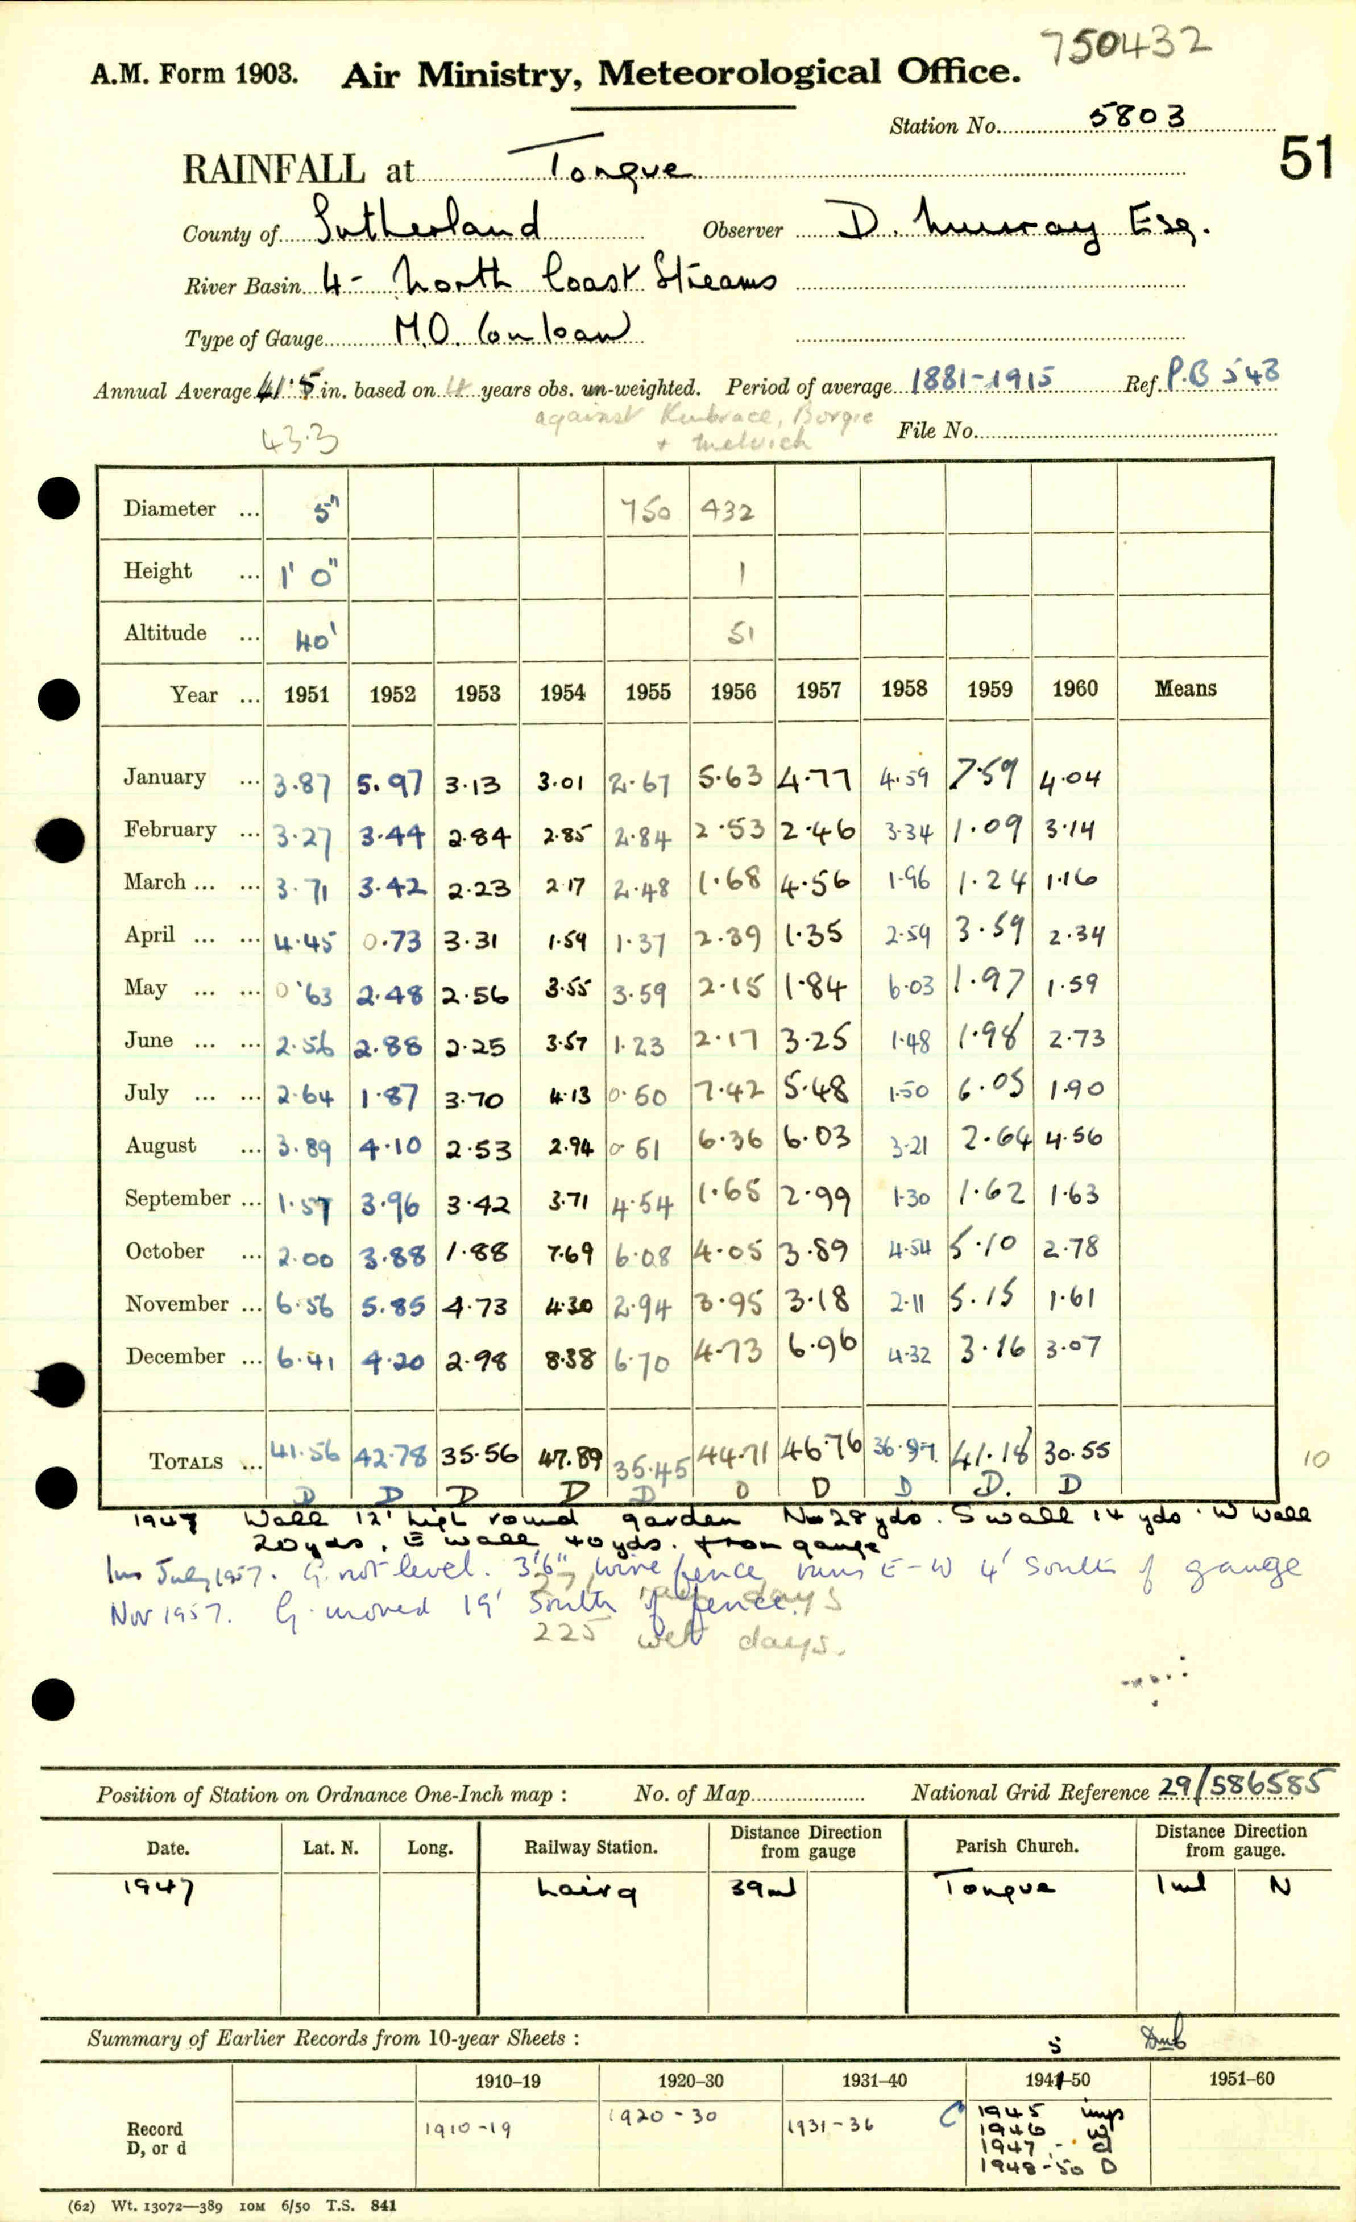 750432
A.M. Form 1903. Air Ministry, Meteorological Office.
Station No. 5803
51
RAINFALL at Tongue
County of Sutherland Observer D. Murray Esq.
River Basin 4 - North Coast Streams
Type of Gauge M.O. Conloan
Annual Average 41.5 in. based on 4 years obs. un-weighted. Period of average 1881-1915 Ref. P.B 543
against Borgie
43.3 + Melvich File No.
Diameter ... 5" 750 432
Height ... 1' 0" 1
Altitude ... 40' 51
Year ... 1951 1952 1953 1954 1955 1956 1957 1958 1959 1960 Means
January ... 3.87 5.97 3.13 3.01 2.67 5.63 4.77 4.59 7.59 4.04
February ... 3.27 3.44 2.84 2.85 2.84 2.53 2.46 3.34 1.09 3.14
March ... ... 3.71 3.42 2.23 2.17 2.48 1.68 4.56 1.96 1.24 1.16
April ... ... 4.45 0.73 3.31 1.59 1.37 2.39 1.35 2.59 3.59 2.34
May ... ... 0.63 2.48 2.56 3.55 3.59 2.15 1.84 6.03 1.97 1.59
June ... ... 2.56 2.88 2.25 3.57 1.23 2.17 3.25 1.48 1.98 2.73
July ... ... 2.64 1.87 3.70 4.13 0.50 7.42 5.48 1.50 6.05 1.90
August ... 3.89 4.10 2.53 2.94 0.51 6.36 6.03 3.21 2.64 4.56
September ... 1.57 3.96 3.42 3.71 4.54 1.65 2.99 1.30 1.62 1.63
October ... 2.00 3.88 1.88 7.69 6.08 4.05 3.89 4.54 5.10 2.78
November ... 6.56 5.85 4.73 4.30 2.94 3.95 3.18 2.11 5.15 1.61
December ... 6.41 4.20 2.98 8.38 6.70 4.73 6.96 4.32 3.16 3.07
TOTALS ... 41.56 42.78 35.56 47.89 35.45 44.71 46.76 36.97 41.18 30.55 10
D D D D D D D D D. D
1947 Wall 12' high round garden N 28 yds. S wall 14 yds. W wall
20 yds, E wall 40 yds. from gauge
Ins July 1957. G. not level. 3'6" wire fence runs E-W 4' South of gauge
days
Nov 1957. G. moved 19' South of fence.
225 wet days.
Position of Station on Ordnance One-Inch map : No. of Map National Grid Reference 29/586585
Date. Lat. N. Long. Railway Station. Distance Direction from gauge Parish Church. Distance Direction from gauge.
1947 Lairg 39ml Tongue 1ml N
Summary of Earlier Records from 10-year Sheets :
5
1910-19 1920-30 1931-40 1941-50 1951-60
Record D, or d 1910-19 1920-30 1931-36 C 1945 imp
1946 w
1947 - d
1948-50 D
(62) Wt. 13072—389 10M 6/50 T.S. 841